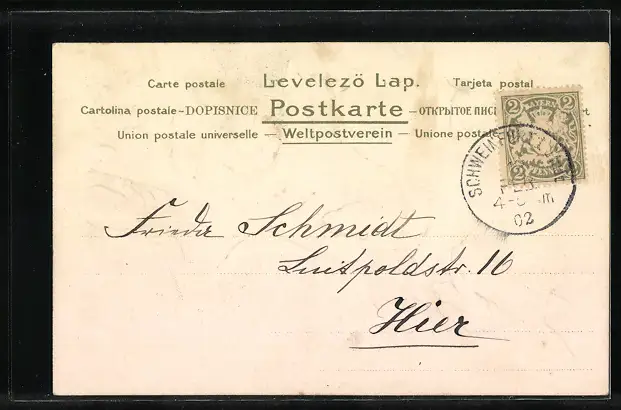 Carte postale Levelező Lap. Tarjeta postal
Cartolina postale–DOPISNICE Postkarte –ОТКРЫТОЕ
Union postale universelle — Weltpostverein — Unione
2 BAYERN 2
2 PFENNIG
SCHWEINFURT
FEB.
02
Frieda Schmidt
Luitpoldstr. 16
Hier